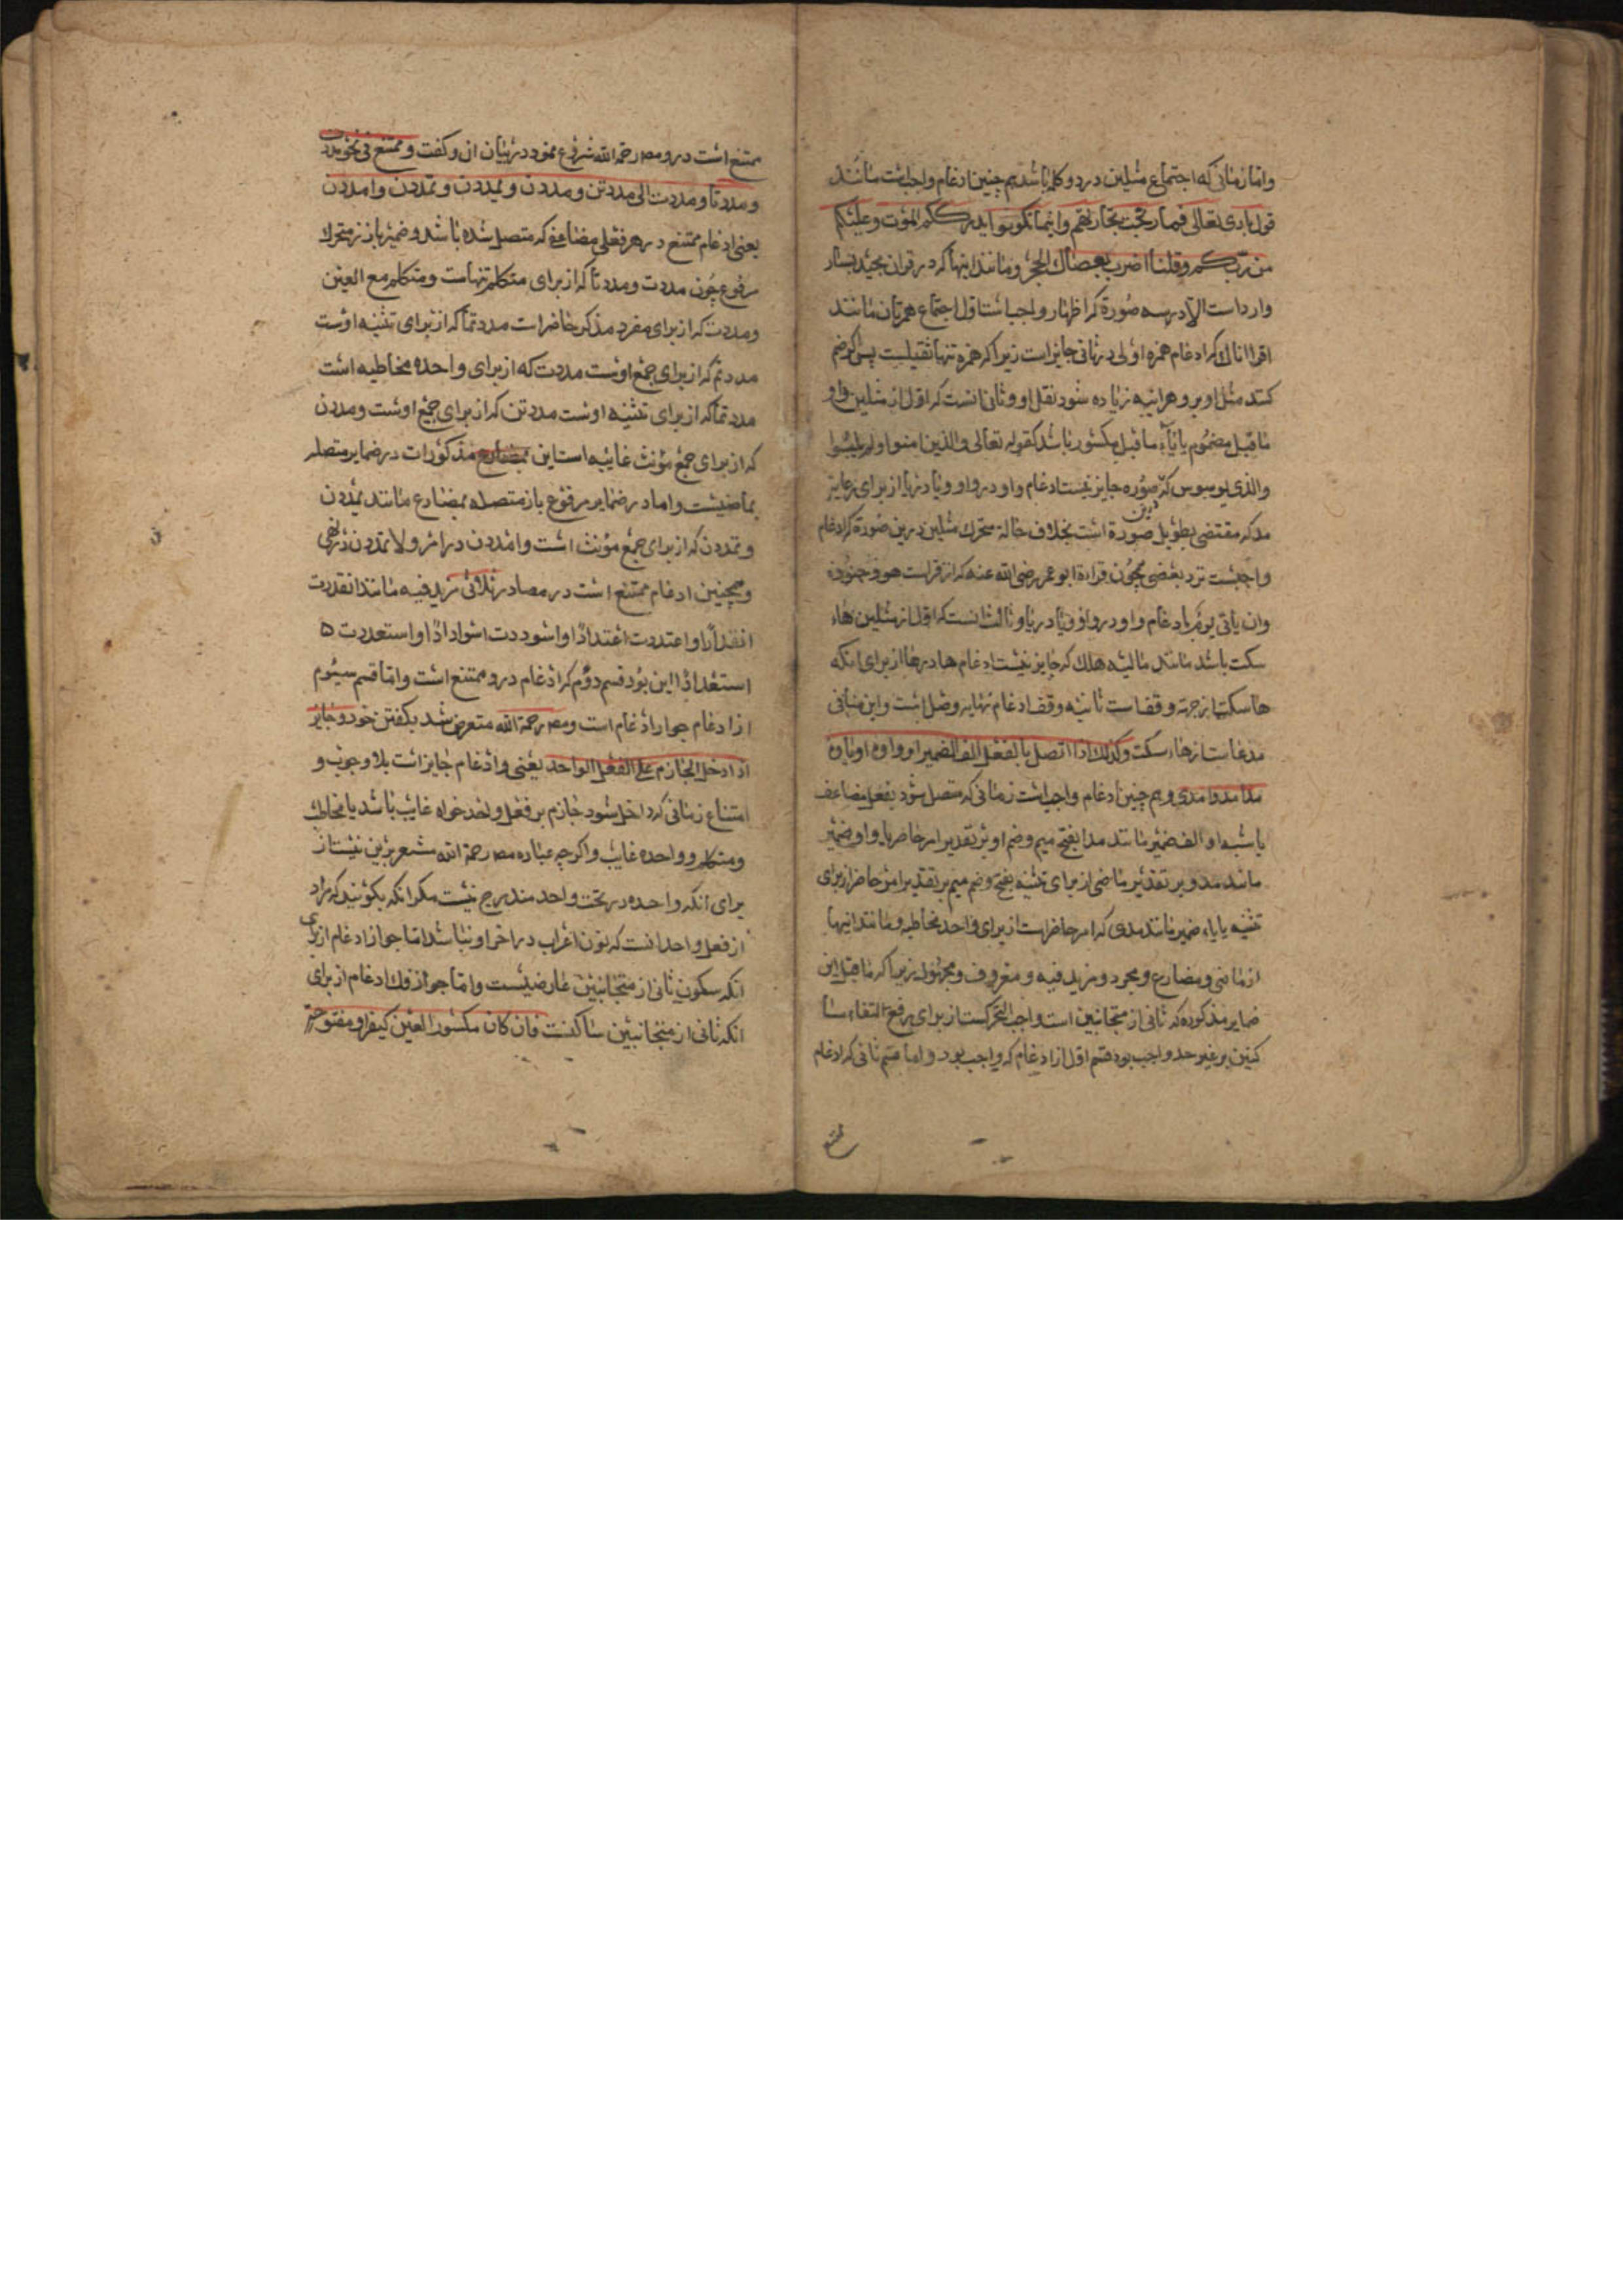 واما زمانی که اجتماع مثلین در دو کلمه باشد هم چنین ادغام واجبست مانند
قول باری تعالی فما ربحت تجارتهم و اینما تکونوا یدرککم الموت و علیکم
من ربکم و قلنا اضرب بعصاک الحجر و مانند اینها که در قران مجید بسیار
وارد است الا در سه صورة که اظهار واجبست اول اجتماع همزتان مانند
اقرا اناک که ادغام همزه اولی در ثانی جایز است زیرا که همزه تنها ثقیلست پس اگر ضم
کنند مثل او برو هراینه زیاده شود نقل او و ثانی انست که اول از مثلین واو
ماقبل مضموم یا یاء ماقبل مکسور باشد کقوله تعالی والذین امنوا ولم یلبسوا
والذی یوسوس که صوره جایز نیست ادغام واو در واو و یا در یا از برای رعایة
مد که مقتضی تطویل صورة است بخلاف حالة متحرک مثلین درین صورة که ادغام
واجبست نزد بعضی همچون قراءة ابو عمر رضی الله عنه که از قراست هو و جنوده
وان یاتی یوم بادغام واو در واو و یا در یا و ثالث انست که اول از مثلین هاء
سکت باشد مانند مالیه هلک که جایز نیست ادغام ها در ها از برای انکه
ها سکت از جهة وقف است ثانیه وقف ادغام نهایه وصل است و این منافی
مدعاست از هاء سکت و کذلک اذا اتصل بالفعل الف الضمیر او واوه او یاوه
مدا مدوا مدی و هم چنین ادغام واجبست زمانی که متصل شود بفعل مضاعف
یا شبه او الف ضمیر مانند مدا بفتح میم و ضم او بر تقدیر امر حاضر یا واو ضمیر
مانند مدو بر تقدیر ماضی از برای تثنیه بفتح و ضم میم بر تقدیر امر حاضر از برای
تثنیه یا یاء ضمیر مانند مدی که امر حاضرست از برای واحد مخاطبه و مانند اینها
از ماضی و مضارع و مجرد و مزید فیه و معروف و مجهول زیرا که ماقبل این
ضمایر مذکوره که ثانی از متجانسین است واجب التحرکست از برای رفع التقاء سا
کنین بر غیر حد واجب بود قسم اول از ادغام که واجب بود و اما قسم ثانی که ادغام
ممتنع
ممتنع است درو مصـ رحمة الله شروع نمود در بیان ان و گفت و ممتنع فی نحو مددت
و مددنا و مددت الی مددتن و مددن و یمددن و تمددن و امددن
یعنی ادغام ممتنع در هر فعلی مضاعف که متصل شده باشد و ضمیر بارز متحرک
مرفوع چون مددت و مددنا که از برای متکلم تنهاست و متکلم مع الغیر
و مددت که از برای مفرد مذکر حاضراست مددتما که از برای تثنیه اوست
مددتم که از برای جمع اوست مددت که از برای واحده مخاطبه است
مددتما که از برای تثنیه اوست مددتن که از برای جمع اوست و مددن
که از برای جمع مؤنث غایبه است این مذکورات در ضمایر متصله
بماضیست و اما در ضمایر مرفوع بارز متصله بمضارع مانند یمددن
و تمددن که از برای جمع مؤنث است و امددن در امر و لا تمددن در نهی
و همچنین ادغام ممتنع است در مصادر ثلاثی مزید فیه مانند انقددت
انقدادا و اعتددت اعتدادا و اسوددت اسوادادا و استعددت
استعدادا این بود قسم دوم که ادغام درو ممتنع است و اما قسم سیوم
از ادغام جواز ادغام است و مصـ رحمة الله متعرض شد بگفتن خود و جایز
اذا دخل الجازم علی الفعل الواحد یعنی و ادغام جایز است بلا وجوب و
امتناع زمانی که داخل شود جازم بر فعل واحد خواه غایب باشد یا مخاطب
و متکلم و واحده غایب و اگرچه عبارة مصـ رحمة الله مشعر برین نیست از
برای انکه واحده در تحت واحد مندرج نیست مکر انکه بکوئید که مراد
از فعل واحد انست که نون اعراب در اخر او نباشد اما جواز ادغام از برای
انکه سکون ثانی از متجانسین عارضیست و اما جواز فک ادغام از برای
انکه ثانی از متجانسین ساکنست فان کان مکسور العین کیفر او مفتوحة